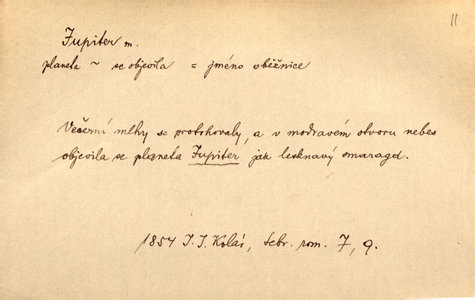 11
Jupiter m.
planeta ~ se objevila = jméno oběžnice
Večerní mlhy se protrhovaly, a v modravém otvoru nebes
objevila se planeta Jupiter jak lesknavý smaragd.
1854 J. J. Kolár, Sebr. rom. 7, 9.